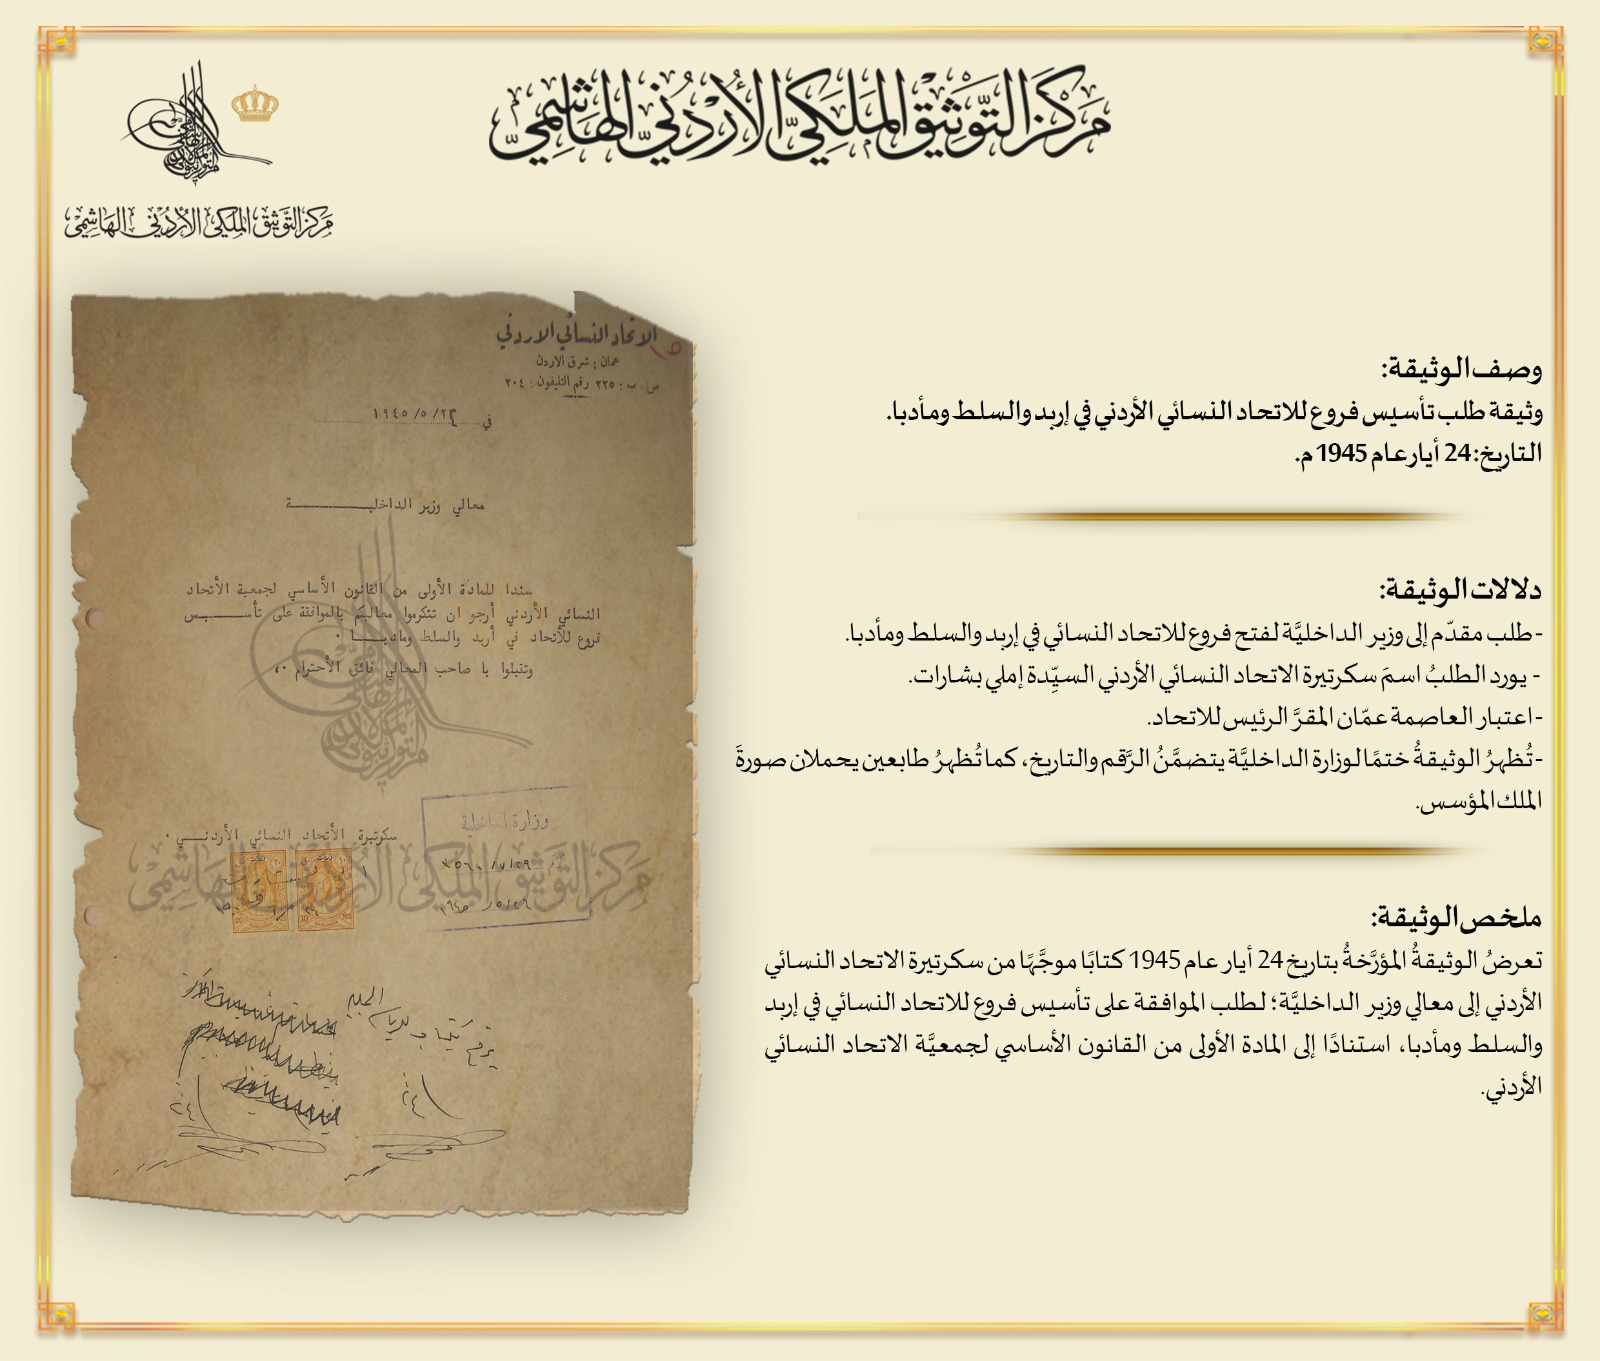 مركز التوثيق الملكي الأردني الهاشمي
مَركز التَّوثيق المَلَكيّ الأُردُني الهَاشِميّ
وصف الوثيقة:
وثيقة طلب تأسيس فروع للاتحاد النسائي الأردني في إربد والسلط ومأدبا.
التاريخ: 24 أيار عام 1945 م.
دلالات الوثيقة:
- طلب مقدّم إلى وزير الداخليَّة لفتح فروع للاتحاد النسائي في إربد والسلط ومأدبا.
- يورد الطلبُ اسمَ سكرتيرة الاتحاد النسائي الأردني السيِّدة إملي بشارات.
- اعتبار العاصمة عمّان المقرَّ الرئيس للاتحاد.
- تُظهرُ الوثيقةُ ختمًا لوزارة الداخليَّة يتضمَّنُ الرَّقم والتاريخ، كما تُظهرُ طابعين يحملان صورةَ
الملك المؤسس.
ملخص الوثيقة:
تعرضُ الوثيقةُ المؤرَّخةُ بتاريخ 24 أيار عام 1945 كتابًا موجَّهًا من سكرتيرة الاتحاد النسائي
الأردني إلى معالي وزير الداخليَّة؛ لطلب الموافقة على تأسيس فروع للاتحاد النسائي في إربد
والسلط ومأدبا، استنادًا إلى المادة الأولى من القانون الأساسي لجمعيَّة الاتحاد النسائي
الأردني.
الاتحاد النسائي الاردني
عمان : شرق الاردن
ص . ب : ٢٢٥ رقم التليفون : ٢٠٤
في ١٩٤٥/٥/٢٤
معالي وزير الداخليـــــــة
سندا للمادة الأولى من القانون الأساسي لجمعية الأتحاد
النسائي الأردني أرجو ان تتكرموا معاليكم بالموافقة على تأســـيس
فروع للأتحاد في أربد والسلط ومادبـــا ٠
وتقبلوا يا صاحب المعالي فائق الأحترام ،٠
وزارة الداخلية
سكرتيرة الأتحاد النسائي الأردنـــي ٠
مركز التوثيق الملكي الأردني الهاشمي